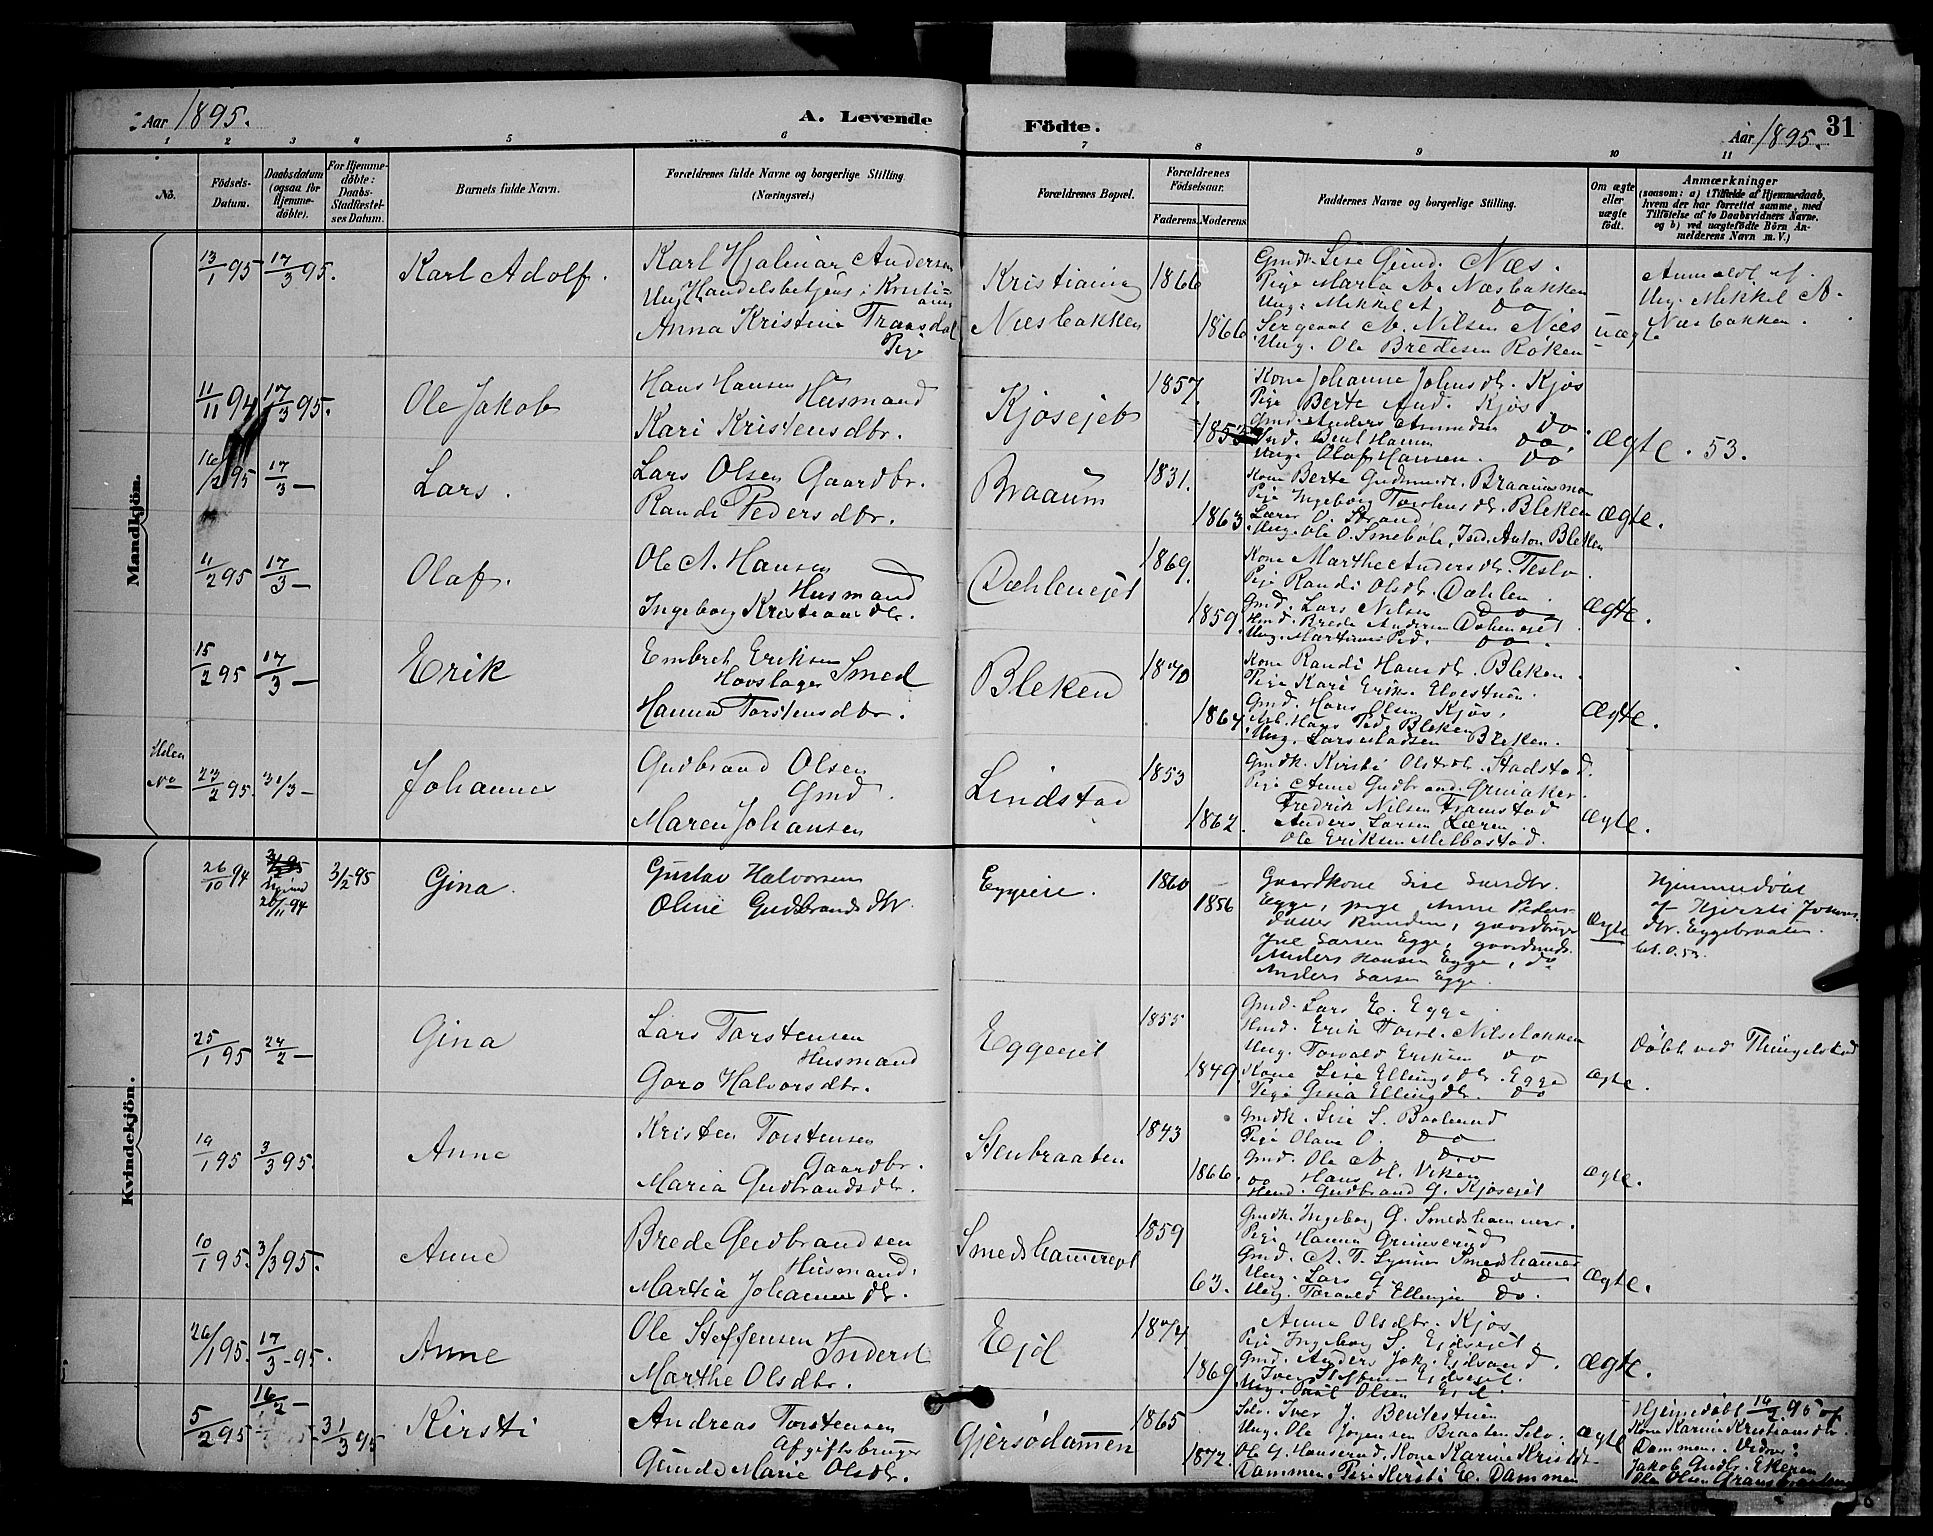 Aar 1895.
A. Levende
Födte.
Aar 1895.
31
1 2 3 4 5 6 7 8 9 10 11
No.
Födsels-
Datum.
Daabsdatum
(ogsaa for
Hjemme-
döbte).
For Hjemme-
döbte:
Daabs-
Stadfæstel-
ses Datum.
Barnets fulde Navn.
Forældrenes fulde Navne og borgerlige Stilling
(Næringsvei.)
Forældrenes Bopæl.
Forældrenes
Födselsaar.
Faderens. Moderens.
Faddernes Navne og borgerlige Stilling.
Om ægte
eller
uægte
födt.
Anmærkninger
(saasom: a) i Tilfælde af Hjemmedaab,
hvem der har forrettet samme, med
Tilföielse af to Daabsvidners Navne.
og b) ved uægtefödte Börn An-
melderens Navn m. V.)
Mandkjön.
13/1 95 17/3 95.
Karl Adolf.
Karl Hjalmar Andersen
Ung. Handelsbetjent i Kristi=
ania
Anna Kristine
Pige
Kristiania
Næsbakken
1866
1866
Gmdk. Lise Gund. Næs.
Pige Maria A. Næsbakken
Ung. Mikkel A. do
Sergeant A. Nilsen Næs
Ung. Ole Bredesen Röken
uægte
Anmeldt af
Ung. Mikkel A.
Næsbakken.
11/11 94 17/3 95.
Ole Jakob
Hans Hansen
Husmand
Kari Kristensdtr.
Kjösejet
1857.
1853
Kone Johanne Johnsdtr. Kjös
Pige Berte And. Kjös
Gmd. Anders Amundsen do
Ind. Bent Hansen do
Ung. Olaf Hansen. do
Ægte. 53.
16/2 95 17/3 —
Lars.
Lars Olsen Gaardbr.
Randi Pedersdtr.
Braaum
1831.
1863.
Kone Berte Gudmundsd. Braaumsmoen
Pige Ingeborg Torstensdtr. Bleken
Lærer O. Strand
Ung. Ole O. Smeböle, Ind. Anton Bleken
Ægte.
11/2 95 17/3 —
Olaf.
Ole A. Hansen
Husmand
Ingeborg Kristiansdtr.
Dæhlenejet
1869.
1859.
Kone Marthe Andersdtr. Teslo
Pige Randi Olsdtr. Dæhlen.
Gmd. Lars Nilsen do
Hmd. Brede Andersen Dæhlenejet
Ung. Martinus Ped. do
Ægte.
15/2 95 17/3 —
Erik
Embret Eriksen
Hovslager Smed
Hanna Torstensdtr.
Bleken
1870
1864
Kone Randi Hansdtr. Bleken.
Pige Kari Eriks. Elvestuen.
Gmd. Hans Olsen Kjös.
Arb. Hans Ped. Bleken
Ung. Lars Madsen Bleken.
Ægte.
23/2 95. 31/3 —
Johannes
Gudbrand Olsen
Gmd.
Maren Johansen
Lindstad
1853
1862.
Gmdk. Kirsti Olsdtr. Stadstad.
Pige Anne Gudbrand. Grinaker.
Fredrik Nilsen Framstad
Anders Larsen Læren.
Ole Eriksen Melbostad.
Ægte.
Kvindekjön.
26/10 94
hjem
20/11 94
3/2 95
Gina.
Gustav Halvorsen
Oline Gudbrandsdtr.
Eggeeie.
1860
1856
Gaardkone Lise Larsdtr.
Egge, pige Anne Peders-
datter Randen, gaardbruger
Iver Larsen Egge, gaardmds.
Anders Hansen Egge, do
Anders Larsen Egge.
Ægte
Hjemmedöbt
af Kjersti Johans-
dtr. Eggebraaten
25/1 95 24/2 —
Gina
Lars Torstensen
Husmand
Goro Halvorsdtr.
Eggeejet
1855
1849.
Gmd. Lars E. Egge
Hmd. Erik Torst. Nilsbakken
Ung. Torvald Eriksen do
Kone Lise Ellingsdtr. Egge
Pige Gina Ellingsdtr. do
Ægte.
Döbt ved Thingelstad
19/1 95 3/3 95.
Anne
Kristen Torstensen
Gaardbr.
Maria Gudbrandsdtr.
Stenbraaten
1843
1866.
Gmdk. Lise L. Baalerud
Pige Olava O. do
Gmd. Ole A. do
do Hans H. Viken
Hmd. Gudbrand G. Kjösejet
Ægte.
10/1 95. 3/3 95.
Anne
Brede Gudbrandsen
Husmand.
Martia Johannesdtr.
Smedshamerejet
1859
63.
Gmdk. Ingeborg G. Smedshammer.
Pige Hanna Grimserud
Gmd. A. T. Smedshamer
Ung. Lars G. do
Ung. Torvald do.
Ægte.
26/1 95. 17/3 — 95.
Anne
Ole Steffensen
Inderst
Marthe Olsdtr.
Ejd
1874
1869
Anne Olsdtr. Kjös
Pige Ingeborg S. Ejdsejet.
Gmd. Anders Jak. Ejdsand.
Iver Steffensen Ejdsejet.
Ung. Paul Olsen Ejd.
Ægte.
5/2 95 16/2 — 31/3 95
Kirsti
Andreas Torstensen
Afgiftsbruger
Gunda Marie Olsdtr.
Gjersödammen
1865
1872.
Selv. Iver J. Bentestuen
Ung. Ole Jörgensen Braaten Selv.
Ole G. Hanserud. Kone Karine Kristdt.
Dammen. Pige Kirsti E. Dammen
Ægte
Hjemdöbt 16/2 95 af
Kone Karine Kristiansdtr.
Dammen. Vidner:
Jakob Gudbr. Ekeren
Ole Olsen